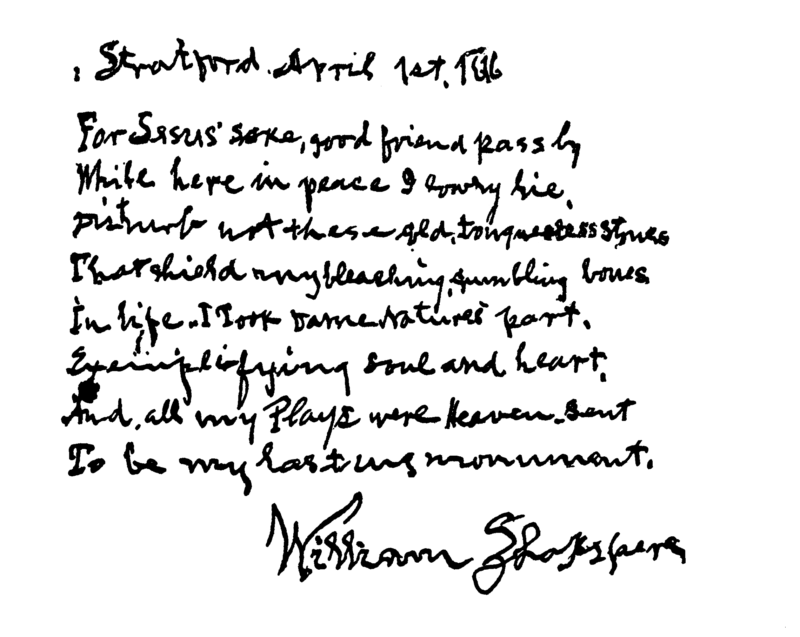 Stratford. April 1st, 1616
For Jesus' sake, good friend pass by
While here in peace I lowly lie,
Disturb not these old, tongueless stones
That shield my bleaching, crumbling bones
In life. I Took Dame Natures' part,
Exemplifying soul and heart,
And, all my Plays were Heaven-sent
To be my lasting monument.
William Shakspere